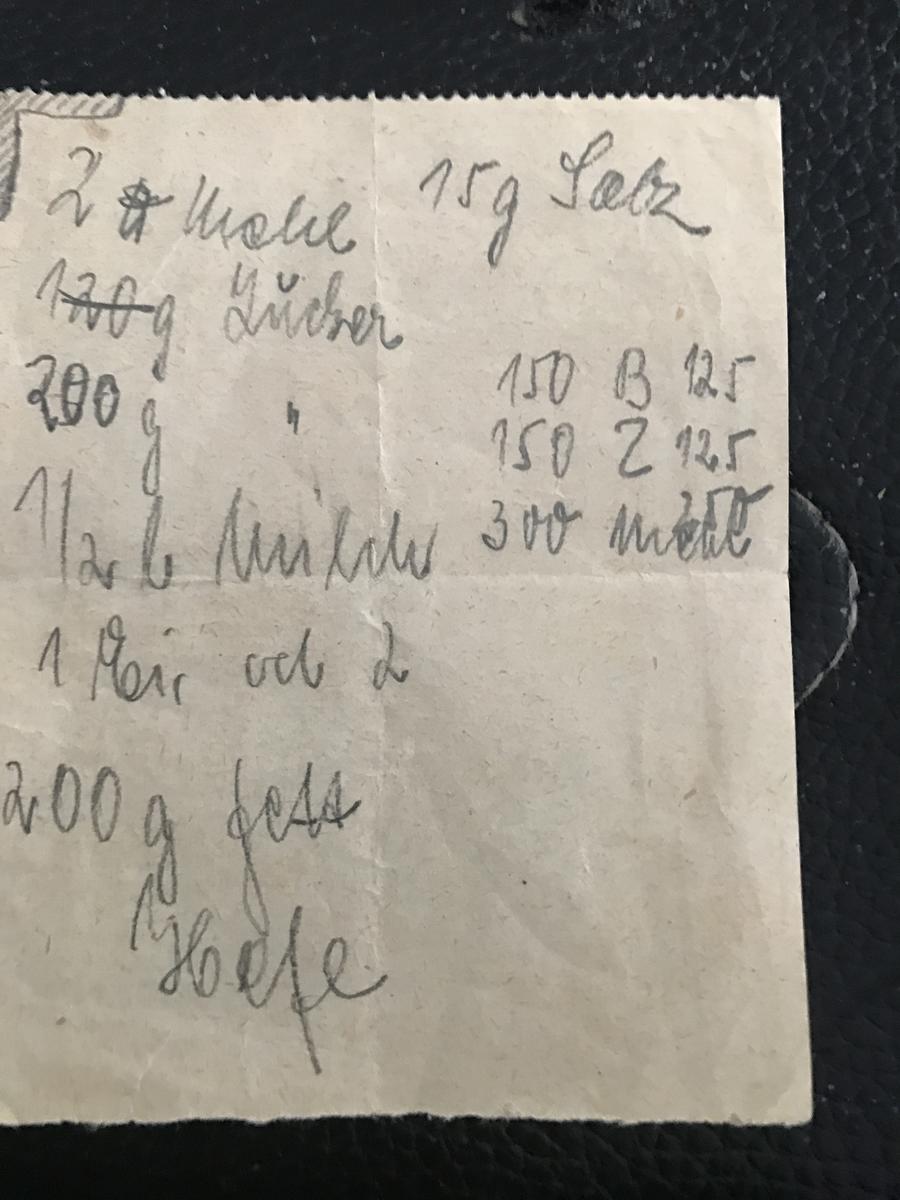 2 ℔ Mehl
120g Zucker
200 g "
1/2 l Milch
1 Ei, od 2
200 g Fett
1 Hefe
15g Salz
150 B 125
150 Z 125
300 Mehl 250